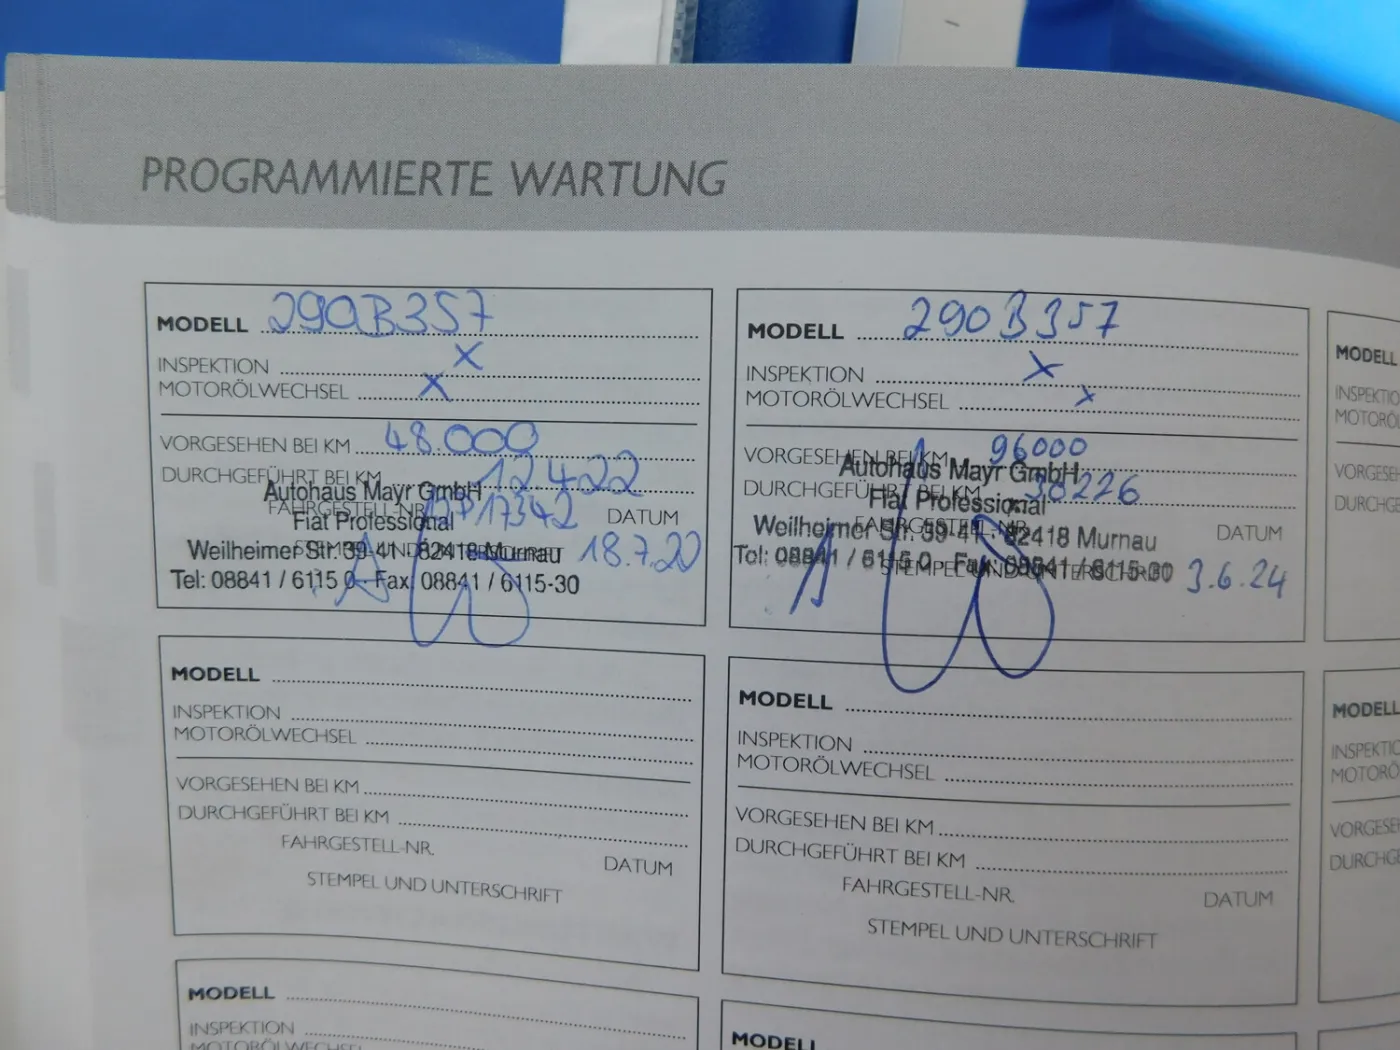 PROGRAMMIERTE WARTUNG
MODELL 290B357
INSPEKTION X
MOTORÖLWECHSEL X
VORGESEHEN BEI KM 48.000
DURCHGEFÜHRT BEI KM 12422
Autohaus Mayr GmbH
FAHRGESTELL-NR. 17342 DATUM
Fiat Professional
Weilheimer Str. 39-41 82418 Murnau 18.7.20
Tel: 08841 / 6115 0 Fax: 08841 / 6115-30
MODELL 290B357
INSPEKTION X
MOTORÖLWECHSEL X
VORGESEHEN BEI KM 96000
Autohaus Mayr GmbH
DURCHGEFÜHRT BEI KM 38226
Fiat Professional
FAHRGESTELL-NR. DATUM
Weilheimer Str. 39-41 82418 Murnau
Tel: 08841 / 6115 0 Fax: 08841 / 6115-30
STEMPEL UND UNTERSCHRIFT 3.6.24
MODELL
INSPEKTION
MOTORÖL
VORGESEHE
DURCHG
MODELL
INSPEKTION
MOTORÖLWECHSEL
VORGESEHEN BEI KM
DURCHGEFÜHRT BEI KM
FAHRGESTELL-NR. DATUM
STEMPEL UND UNTERSCHRIFT
MODELL
INSPEKTION
MOTORÖLWECHSEL
VORGESEHEN BEI KM
DURCHGEFÜHRT BEI KM
FAHRGESTELL-NR. DATUM
STEMPEL UND UNTERSCHRIFT
MODELL
INSPEKTIO
MOTORÖ
VORGESE
DURCHGE
MODELL
INSPEKTION
MOTORÖLWECHSEL
MODELL